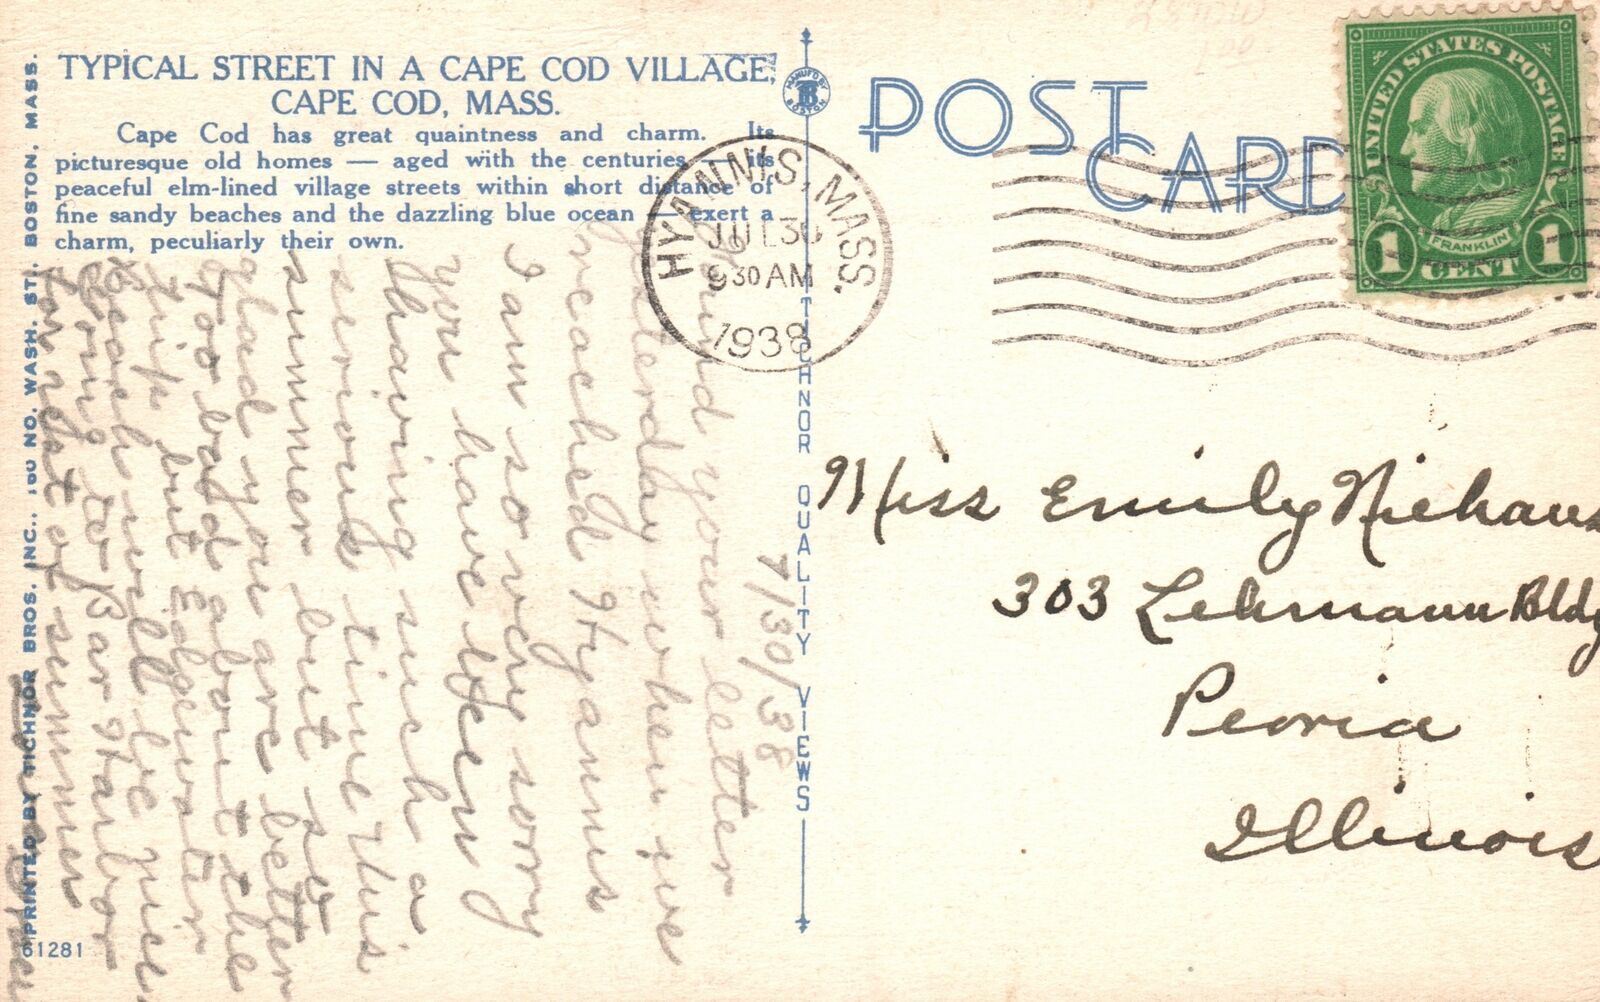 TYPICAL STREET IN A CAPE COD VILLAGE,
CAPE COD, MASS.
Cape Cod has great quaintness and charm. Its
picturesque old homes — aged with the centuries — its
peaceful elm-lined village streets within short distance of
fine sandy beaches and the dazzling blue ocean — exert a
charm, peculiarly their own.
7/30/38
Found your letter
yesterday when we
reached Hyannis
I am so very sorry
you have been
having such a
serious time this
summer but so
glad you are better
Too bad about the
trip but Edgewater
Beach will be nice
Going to Bar Harbor
for rest of summer
PRINTED BY TICHNOR BROS. INC., 160 NO. WASH. ST., BOSTON, MASS.
61281
MANUFD BY
TB
BOSTON
TICHNOR QUALITY VIEWS
POST
CARD
HYANNIS, MASS.
JUL 30
9 30 AM
1938
UNITED STATES POSTAGE
FRANKLIN
1 CENT 1
Miss Emily Niehaus
303 Lehmann Bldg
Peoria
Illinois